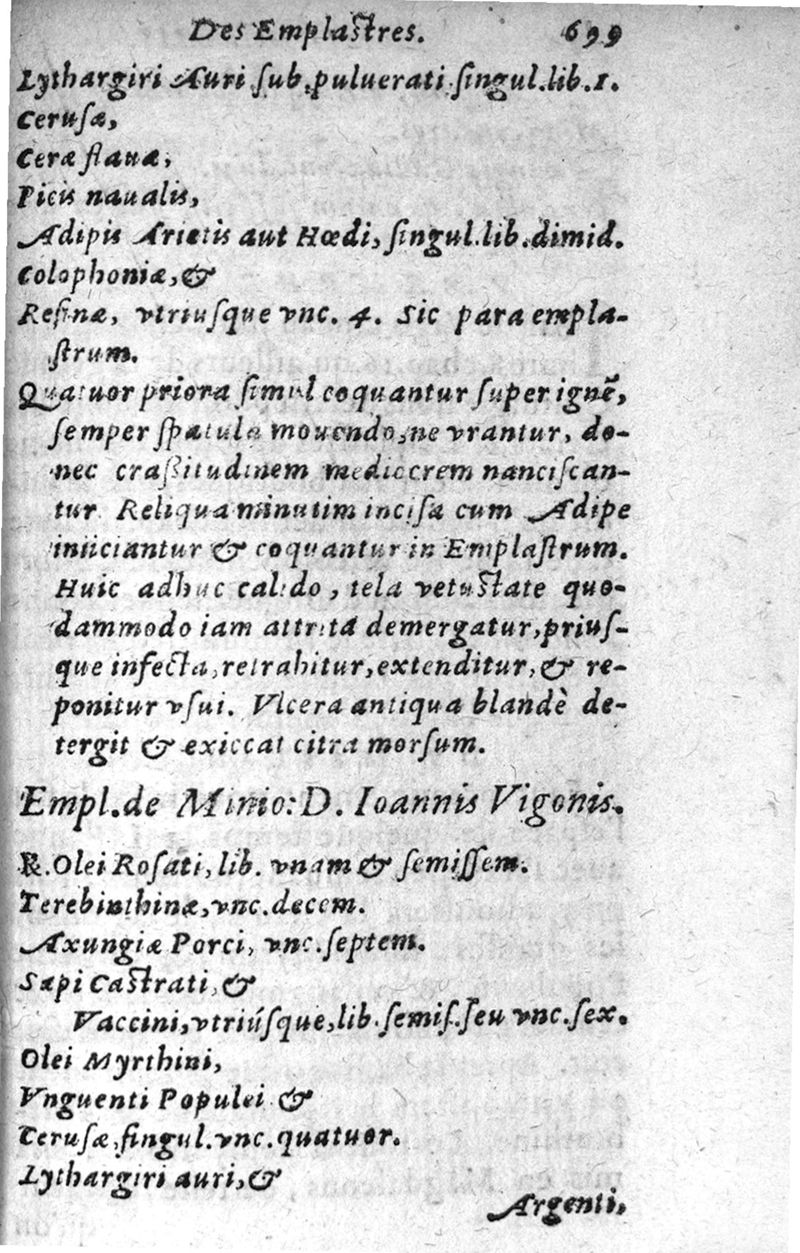 Des Emplastres. 699
Lythargiri Auri sub.puluerati singul.lib.1.
Cerusæ,
Ceræ flauæ,
Picis naualis,
Adipis Arietis aut Hœdi, singul.lib.dimid.
Colophoniæ,&
Resinæ, vtriusque vnc. 4. Sic para empla-
strum.
Quatuor priora simul coquantur super ignẽ,
semper spatula mouendo,ne vrantur, do-
nec crassitudinem mediocrem nanciscan-
tur. Reliqua minutim incisa cum Adipe
iniiciantur & coquantur in Emplastrum.
Huic adhuc calido, tela vetustate quo-
dammodo iam attrita demergatur,prius-
que infecta,retrahitur,extenditur,& re-
ponitur vsui. Vlcera antiqua blandè de-
tergit & exiccat citra morsum.
Empl.de Minio: D. Ioannis Vigonis.
℞.Olei Rosati, lib. vnam & semissem.
Terebinthinæ,vnc.decem.
Axungiæ Porci, vnc.septem.
Sæpi Castrati,&
Vaccini,vtriúsque,lib.semis.seu vnc.sex.
Olei Myrthini,
Vnguenti Populei &
Cerusæ,singul.vnc.quatuor.
Lythargiri auri,&
Argenti,